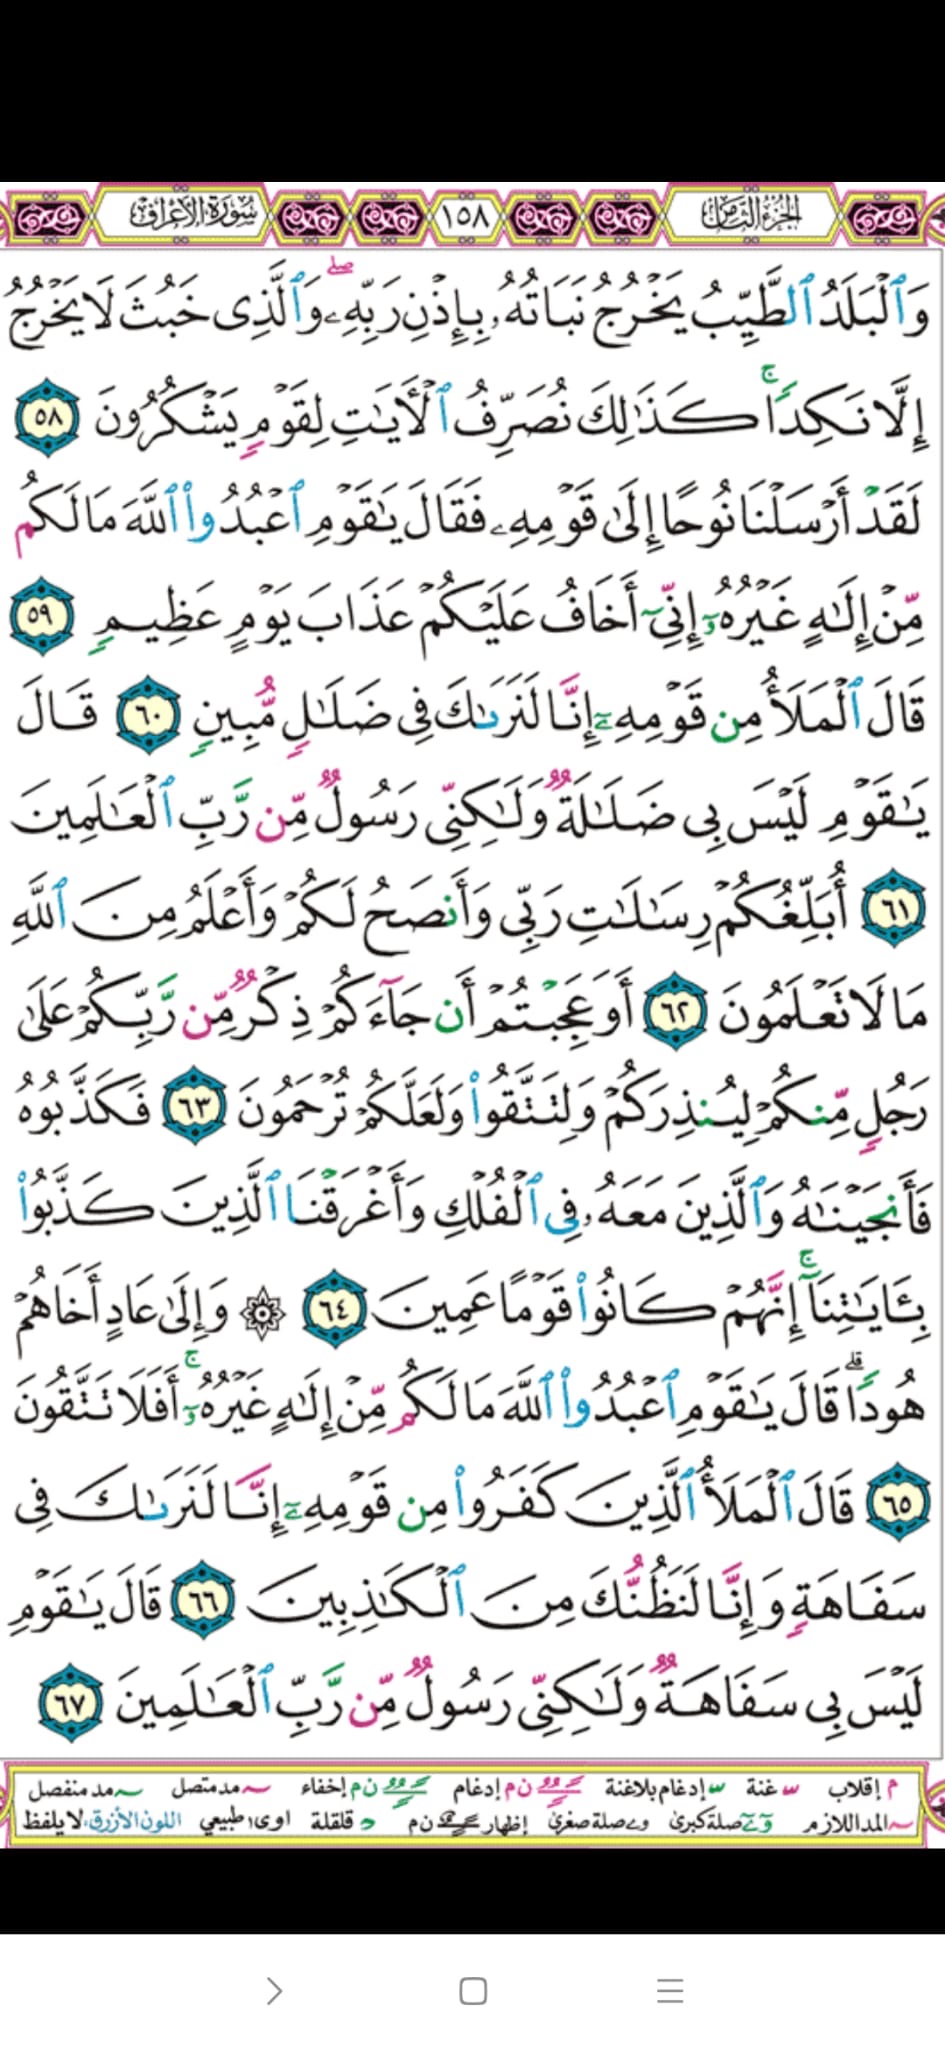 الجزء الثامن
١٥٨
سورة الأعراف
وَٱلْبَلَدُ ٱلطَّيِّبُ يَخْرُجُ نَبَاتُهُۥ بِإِذْنِ رَبِّهِۦ ۖ وَٱلَّذِى خَبُثَ لَا يَخْرُجُ
إِلَّا نَكِدًا ۚ كَذَٰلِكَ نُصَرِّفُ ٱلْأٓيَٰتِ لِقَوْمٍ يَشْكُرُونَ ٥٨
لَقَدْ أَرْسَلْنَا نُوحًا إِلَىٰ قَوْمِهِۦ فَقَالَ يَٰقَوْمِ ٱعْبُدُوا۟ ٱللَّهَ مَا لَكُم
مِّنْ إِلَٰهٍ غَيْرُهُۥٓ إِنِّىٓ أَخَافُ عَلَيْكُمْ عَذَابَ يَوْمٍ عَظِيمٍ ٥٩
قَالَ ٱلْمَلَأُ مِن قَوْمِهِۦٓ إِنَّا لَنَرَىٰكَ فِى ضَلَٰلٍ مُّبِينٍ ٦٠ قَالَ
يَٰقَوْمِ لَيْسَ بِى ضَلَٰلَةٌ وَلَٰكِنِّى رَسُولٌ مِّن رَّبِّ ٱلْعَٰلَمِينَ
٦١ أُبَلِّغُكُمْ رِسَٰلَٰتِ رَبِّى وَأَنصَحُ لَكُمْ وَأَعْلَمُ مِنَ ٱللَّهِ
مَا لَا تَعْلَمُونَ ٦٢ أَوَعَجِبْتُمْ أَن جَآءَكُمْ ذِكْرٌ مِّن رَّبِّكُمْ عَلَىٰ
رَجُلٍ مِّنكُمْ لِيُنذِرَكُمْ وَلِتَتَّقُوا۟ وَلَعَلَّكُمْ تُرْحَمُونَ ٦٣ فَكَذَّبُوهُ
فَأَنجَيْنَٰهُ وَٱلَّذِينَ مَعَهُۥ فِى ٱلْفُلْكِ وَأَغْرَقْنَا ٱلَّذِينَ كَذَّبُوا۟
بِـَٔايَٰتِنَآ ۚ إِنَّهُمْ كَانُوا۟ قَوْمًا عَمِينَ ٦٤ ۞ وَإِلَىٰ عَادٍ أَخَاهُمْ
هُودًا ۗ قَالَ يَٰقَوْمِ ٱعْبُدُوا۟ ٱللَّهَ مَا لَكُم مِّنْ إِلَٰهٍ غَيْرُهُۥٓ ۚ أَفَلَا تَتَّقُونَ
٦٥ قَالَ ٱلْمَلَأُ ٱلَّذِينَ كَفَرُوا۟ مِن قَوْمِهِۦٓ إِنَّا لَنَرَىٰكَ فِى
سَفَاهَةٍ وَإِنَّا لَنَظُنُّكَ مِنَ ٱلْكَٰذِبِينَ ٦٦ قَالَ يَٰقَوْمِ
لَيْسَ بِى سَفَاهَةٌ وَلَٰكِنِّى رَسُولٌ مِّن رَّبِّ ٱلْعَٰلَمِينَ ٦٧
م إقلاب غنة إدغام بلاغنة ن م إدغام ن م إخفاء مد متصل مد منفصل
المد اللازم صلة كبرى صلة صغرى إظهار ن م قلقلة اوى طبيعي اللون الأزرق، لا يلفظ